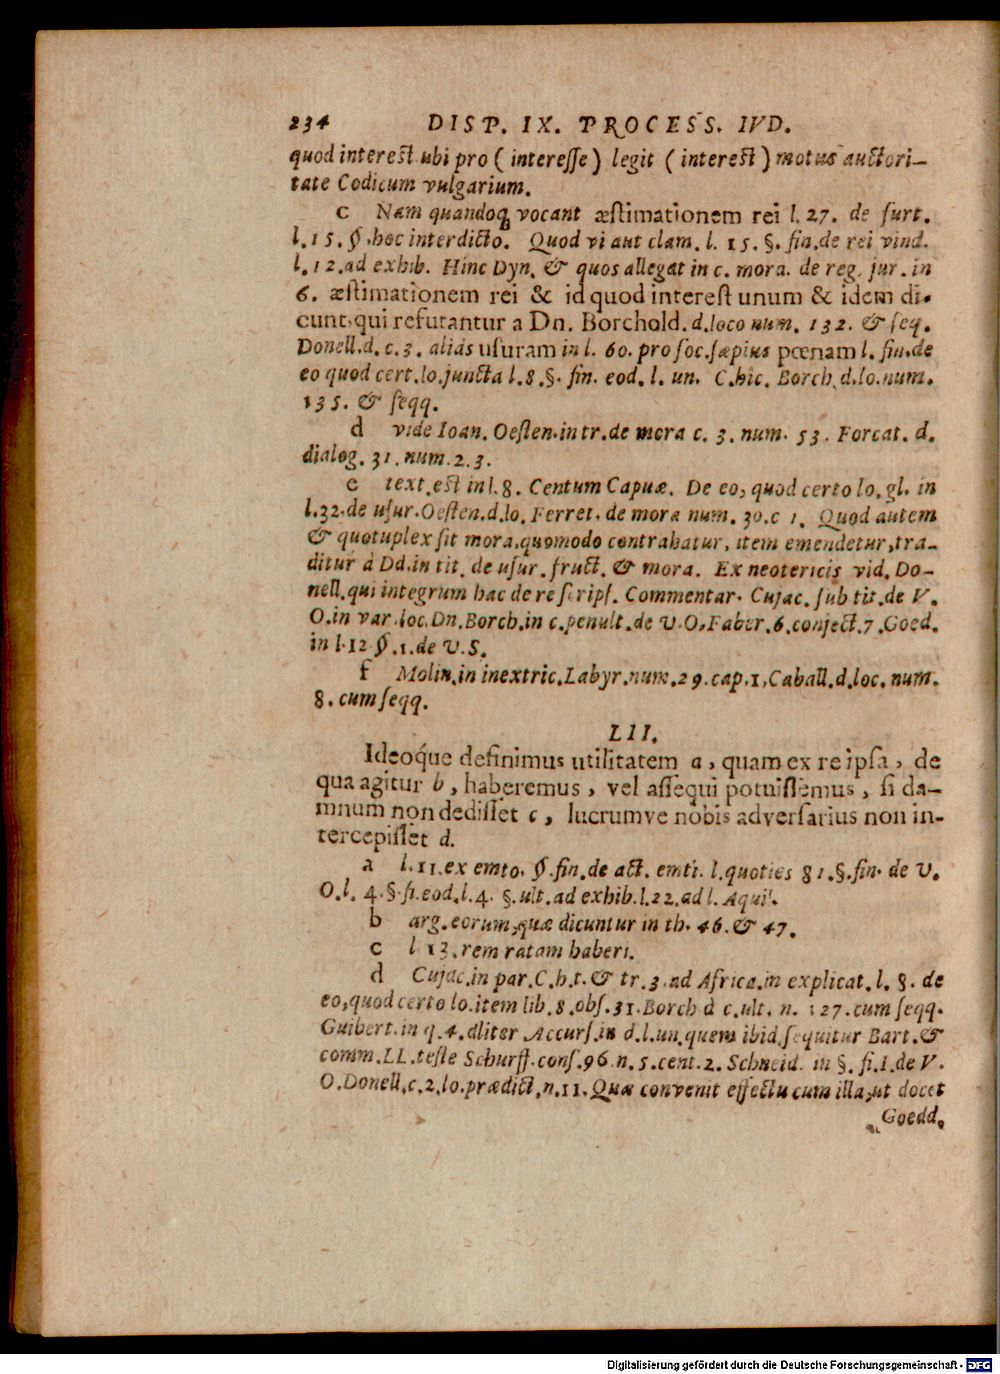 234 DISP. IX. PROCESS. IVD.
quod interest ubi pro ( interesſe ) legit ( interest ) motus auctori-
tate Codicum vulgarium.
c Nam quandoq; vocant æſtimationem rei l. 27. de furt.
l. 15. §. hoc interdicto. Quod vi aut clam. l. 15. §. fin. de rei vind.
l. 12. ad exhib. Hinc Dyn. & quos allegat in c. mora. de reg. jur. in
6. æſtimationem rei & id quod intereſt unum & idem di-
cunt, qui refutantur a Dn. Borchold. d. loco num. 132. & ſeq.
Donell. d. c. 3. aliàs uſuram in l. 60. pro ſoc. ſæpius pœnam l. fin. de
eo quod cert. lo. juncta l. 8. §. fin. eod. l. un. C. hic. Borch. d. lo. num.
135. & ſeqq.
d vide Ioan. Oeſten. in tr. de mora c. 3. num. 53. Forcat. d.
dialog. 31. num. 2. 3.
e text. est in l. 8. Centum Capuæ. De eo, quod certo lo. gl. in
l. 32. de uſur. Oeſten. d. lo. Ferret. de mora num. 30. c 1. Quod autem
& quotuplex ſit mora, quomodo contrahatur, item emendetur, tra-
ditur à Dd. in tit. de uſur. fruct. & mora. Ex neotericis vid. Do-
nell. qui integrum hac de re ſcripſ. Commentar. Cujac. ſub tit. de V.
O. in var. loc. Dn. Borch. in c. penult. de V. O. Faber. 6. conject. 7. Goed.
in l. 12 §. 1. de V. S.
f Molin. in inextric. Labyr. num. 29. cap. 1, Caball. d. loc. num.
8. cum ſeqq.
LII.
Ideoque definimus utilitatem a, quam ex re ipſa, de
qua agitur b, haberemus, vel aſſequi potuiſſemus, ſi da-
mnum non dediſſet c, lucrumve nobis adverſarius non in-
tercepiſſet d.
a l. 11. ex emto. §. fin. de act. emti. l. quoties 81. §. fin. de V.
O. l. 4. §. ſi. eod. l. 4. §. ult. ad exhib. l. 22. ad l. Aquil.
b arg. eorum, quæ dicuntur in th. 46. & 47.
c l 13. rem ratam haberi.
d Cujac. in par. C. h. t. & tr. 3. ad Africa. in explicat. l. 8. de
eo, quod certo lo. item lib. 8. obſ. 31. Borch d c. ult. n. 127. cum ſeqq.
Guibert. in q. 4. aliter Accurſ. in d. l. un. quem ibid. ſequitur Bart. &
comm. LL. teſte Schurff. conſ. 96. n. 5. cent. 2. Schneid. in §. ſi. I. de V.
O. Donell. c. 2. lo. prædict. n. 11. Quæ convenit effectu cum illa, ut docet
Goedd.
Digitalisierung gefördert durch die Deutsche Forschungsgemeinschaft - DFG